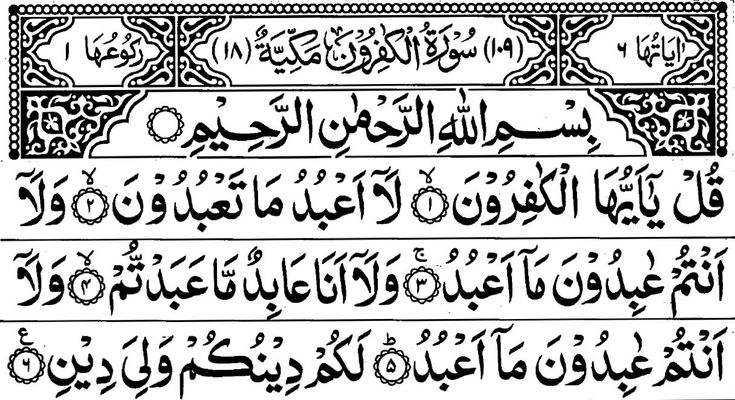 اٰیَاتُهَا ٦ (١٠٩) سُوْرَةُ الْكٰفِرُوْنَ مَكِّيَّةٌ (١٨) رُكُوْعُهَا ١
بِسْمِ اللّٰهِ الرَّحْمٰنِ الرَّحِيْمِ
قُلْ يٰٓاَيُّهَا الْكٰفِرُوْنَ ۙ﴿١﴾ لَاۤ اَعْبُدُ مَا تَعْبُدُوْنَ ۙ﴿٢﴾ وَلَاۤ
اَنْتُمْ عٰبِدُوْنَ مَاۤ اَعْبُدُ ۚ﴿٣﴾ وَلَاۤ اَنَا عَابِدٌ مَّا عَبَدْتُّمْ ۙ﴿٤﴾ وَلَاۤ
اَنْتُمْ عٰبِدُوْنَ مَاۤ اَعْبُدُ ؕ﴿٥﴾ لَكُمْ دِيْنُكُمْ وَلِيَ دِيْنِ ﴿٦﴾ ع